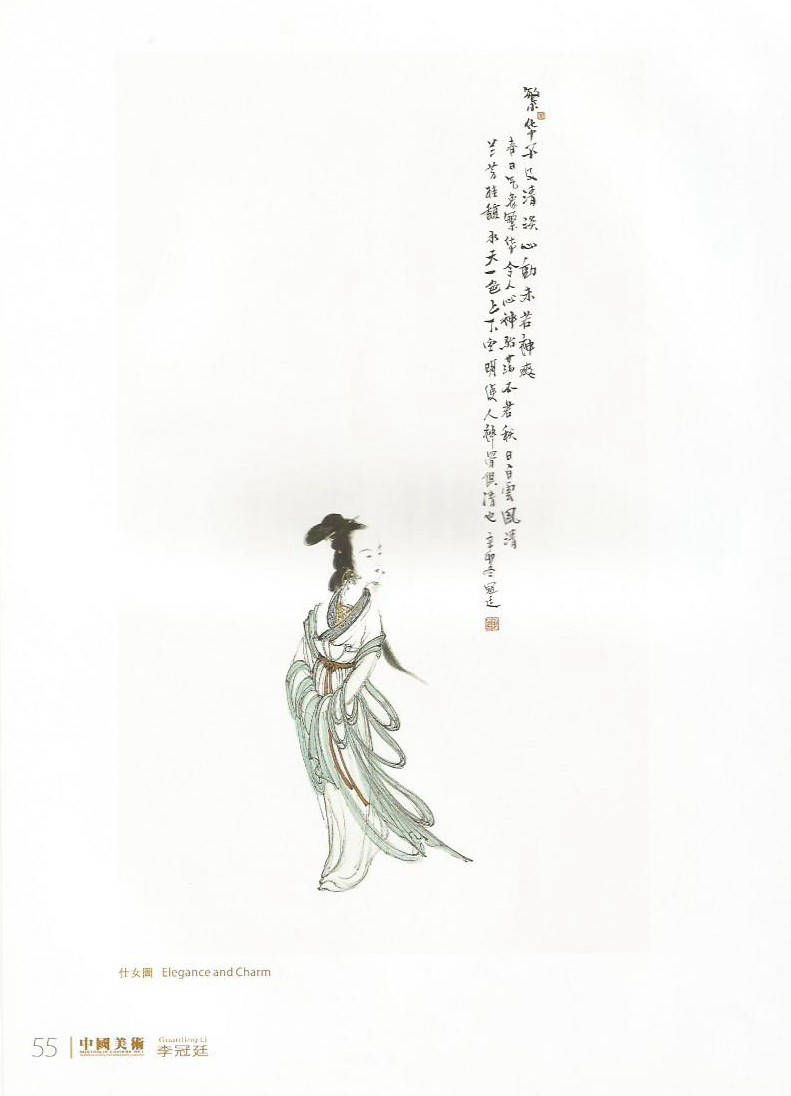 繁华不及清淡心動未若神
春日气象繁华令人心神駘蕩不若秋日白雲風清
兰芳桂馥水天一色上下空明使人神骨俱清也
冠廷
仕女圖 Elegance and Charm
55
中國美術
Guanting Li
李冠廷